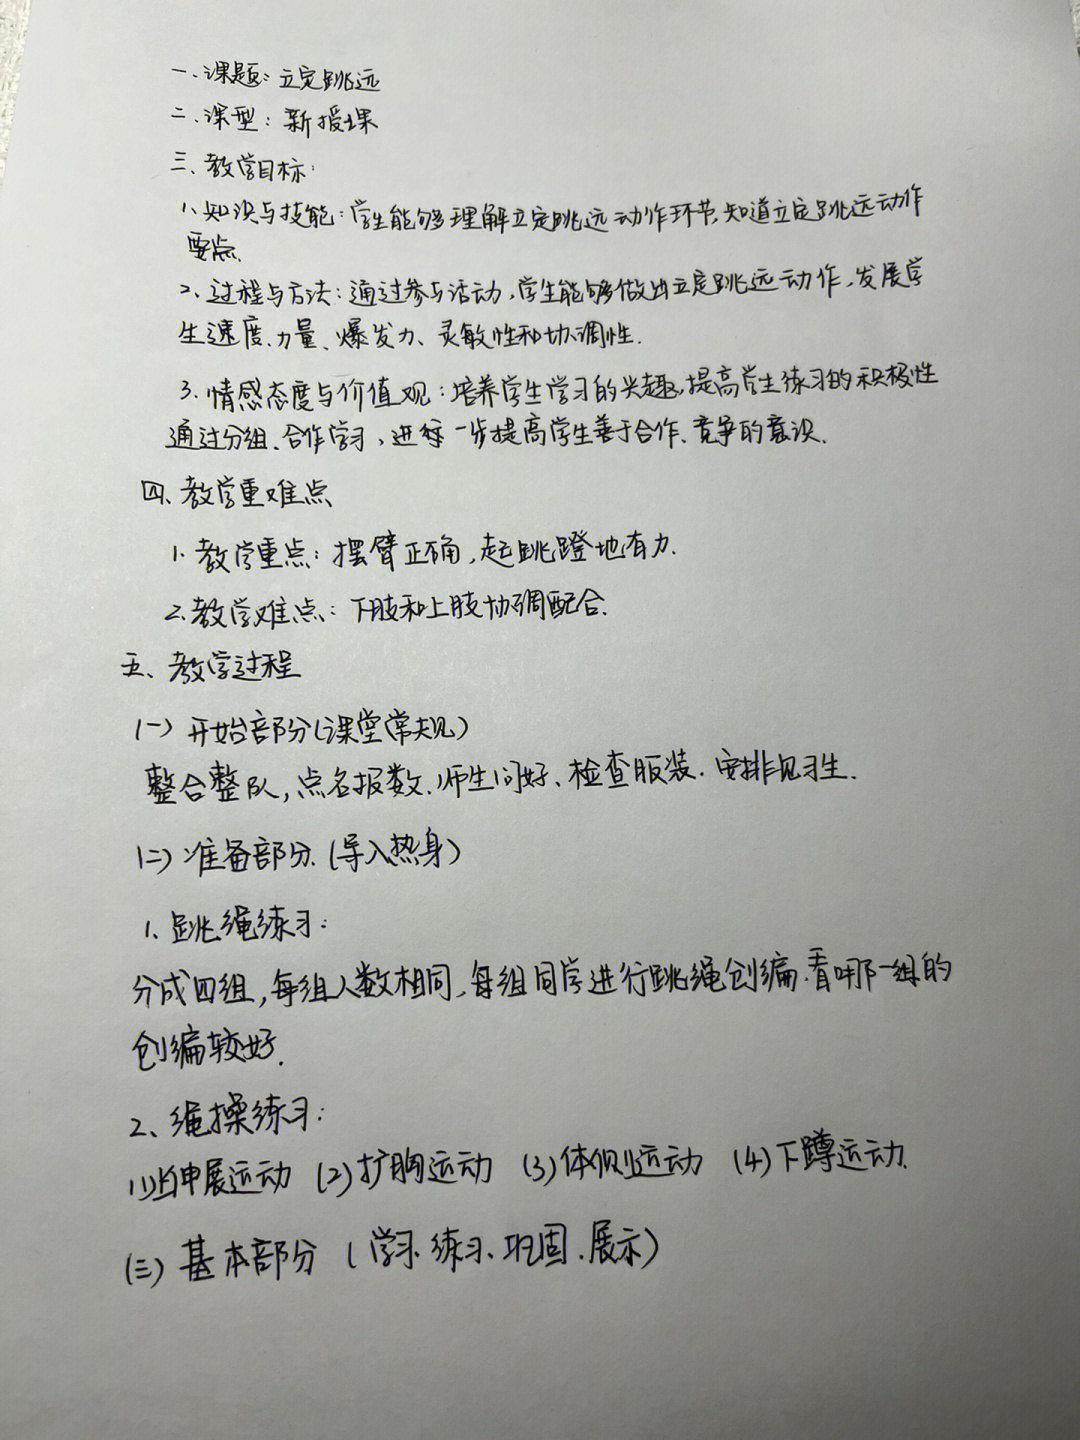 一、课题：立定跳远
二、课型：新授课
三、教学目标：
1、知识与技能：学生能够理解立定跳远动作环节，知道立定跳远动作
要点、
2、过程与方法：通过参与活动，学生能够做出立定跳远动作，发展学
生速度、力量、爆发力、灵敏性和协调性.
3、情感态度与价值观：培养学生学习的兴趣，提高学生练习的积极性
通过分组、合作学习，进一步提高学生善于合作、竞争的意识、
四、教学重难点
1、教学重点：摆臂正确，起跳蹬地有力.
2、教学难点：下肢和上肢协调配合.
五、教学过程
(一) 开始部分(课堂常规)
整合整队，点名报数、师生问好、检查服装、安排见习生.
(二) 准备部分、(导入热身)
1、跳绳练习：
分成四组，每组人数相同，每组同学进行跳绳创编、看哪一组的
创编较好.
2、绳操练习：
(1)伸展运动 (2)扩胸运动 (3)体侧运动 (4)下蹲运动、
(三) 基本部分 (学习、练习、巩固、展示)